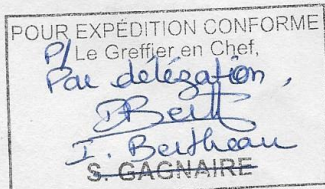 POUR EXPÉDITION CONFORME
P/ Le Greffier en Chef,
Par délégation,
I. Bertheau
S. GAGNAIRE